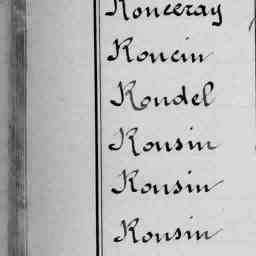 Ronceray
Roncin
Rondel
Ronsin
Ronsin
Ronsin